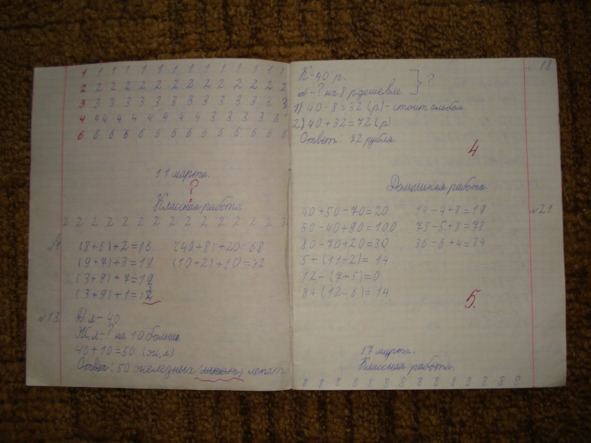 1 1 1 1 1 1 1 1 1 1 1 1 1 1
2 2 2 2 2 2 2 2 2 2 2 2 2 2
3 3 3 3 3 3 3 3 3 3 3 3 3
4 44 4 4 4 4 4 4 3 3 3 3 3
6 6 6 6 6 6 6 6 6 6 6 6 6
11 марта.
?
Классная работа
2 2 2 2 2 2 2 2 2 2 2 2 2 2 3
(8+6)+2=16 (40+8)+20=68
(9+7)+3=19 (10+2)+60=72
(3+9)+7=19
(3+9)+1=12
№13. Д.л-40
Ж.л-? на 10 больше
40+10=50 (ж.л)
Ответ: 50 железных лопат
18
К-40 р.
а-? на 8 р дешевле ?
1) 40-8=32 (р)-стоит альбом
2) 40+32=72 (р)
Ответ: 72 рубля.
4
Домашняя работа
40+50-70=20 14-4+8=18 №21
75-5+8=78
80-70+20=30 36-6+4=34
5+(11-2)=14
12-(7+5)=0
8+(12-6)=14
5.
17 марта.
Классная работа.
8 8 8 8 8 8 8 8 8 8 8 8 8